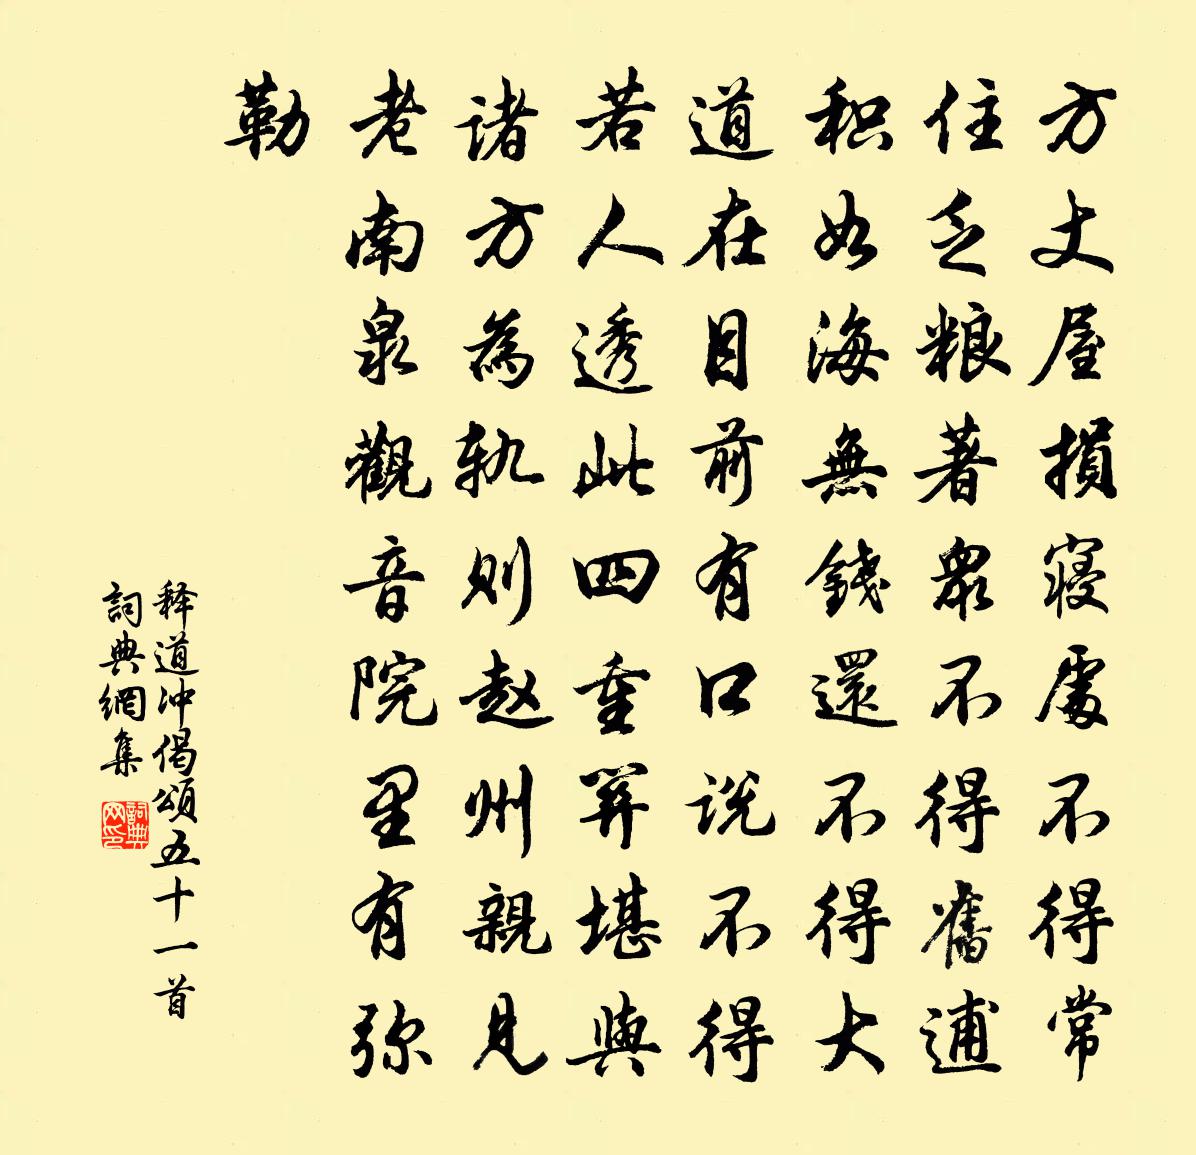 方丈屋損寝處不得常
住乏粮著眾不得舊逋
积如海無錢還不得大
道在目前有口说不得
若人透此四重關堪與
诸方為軌則赵州親見
老南泉觀音院里有弥
勒
释道冲偈頌五十一首
詞典網集
詞典网印